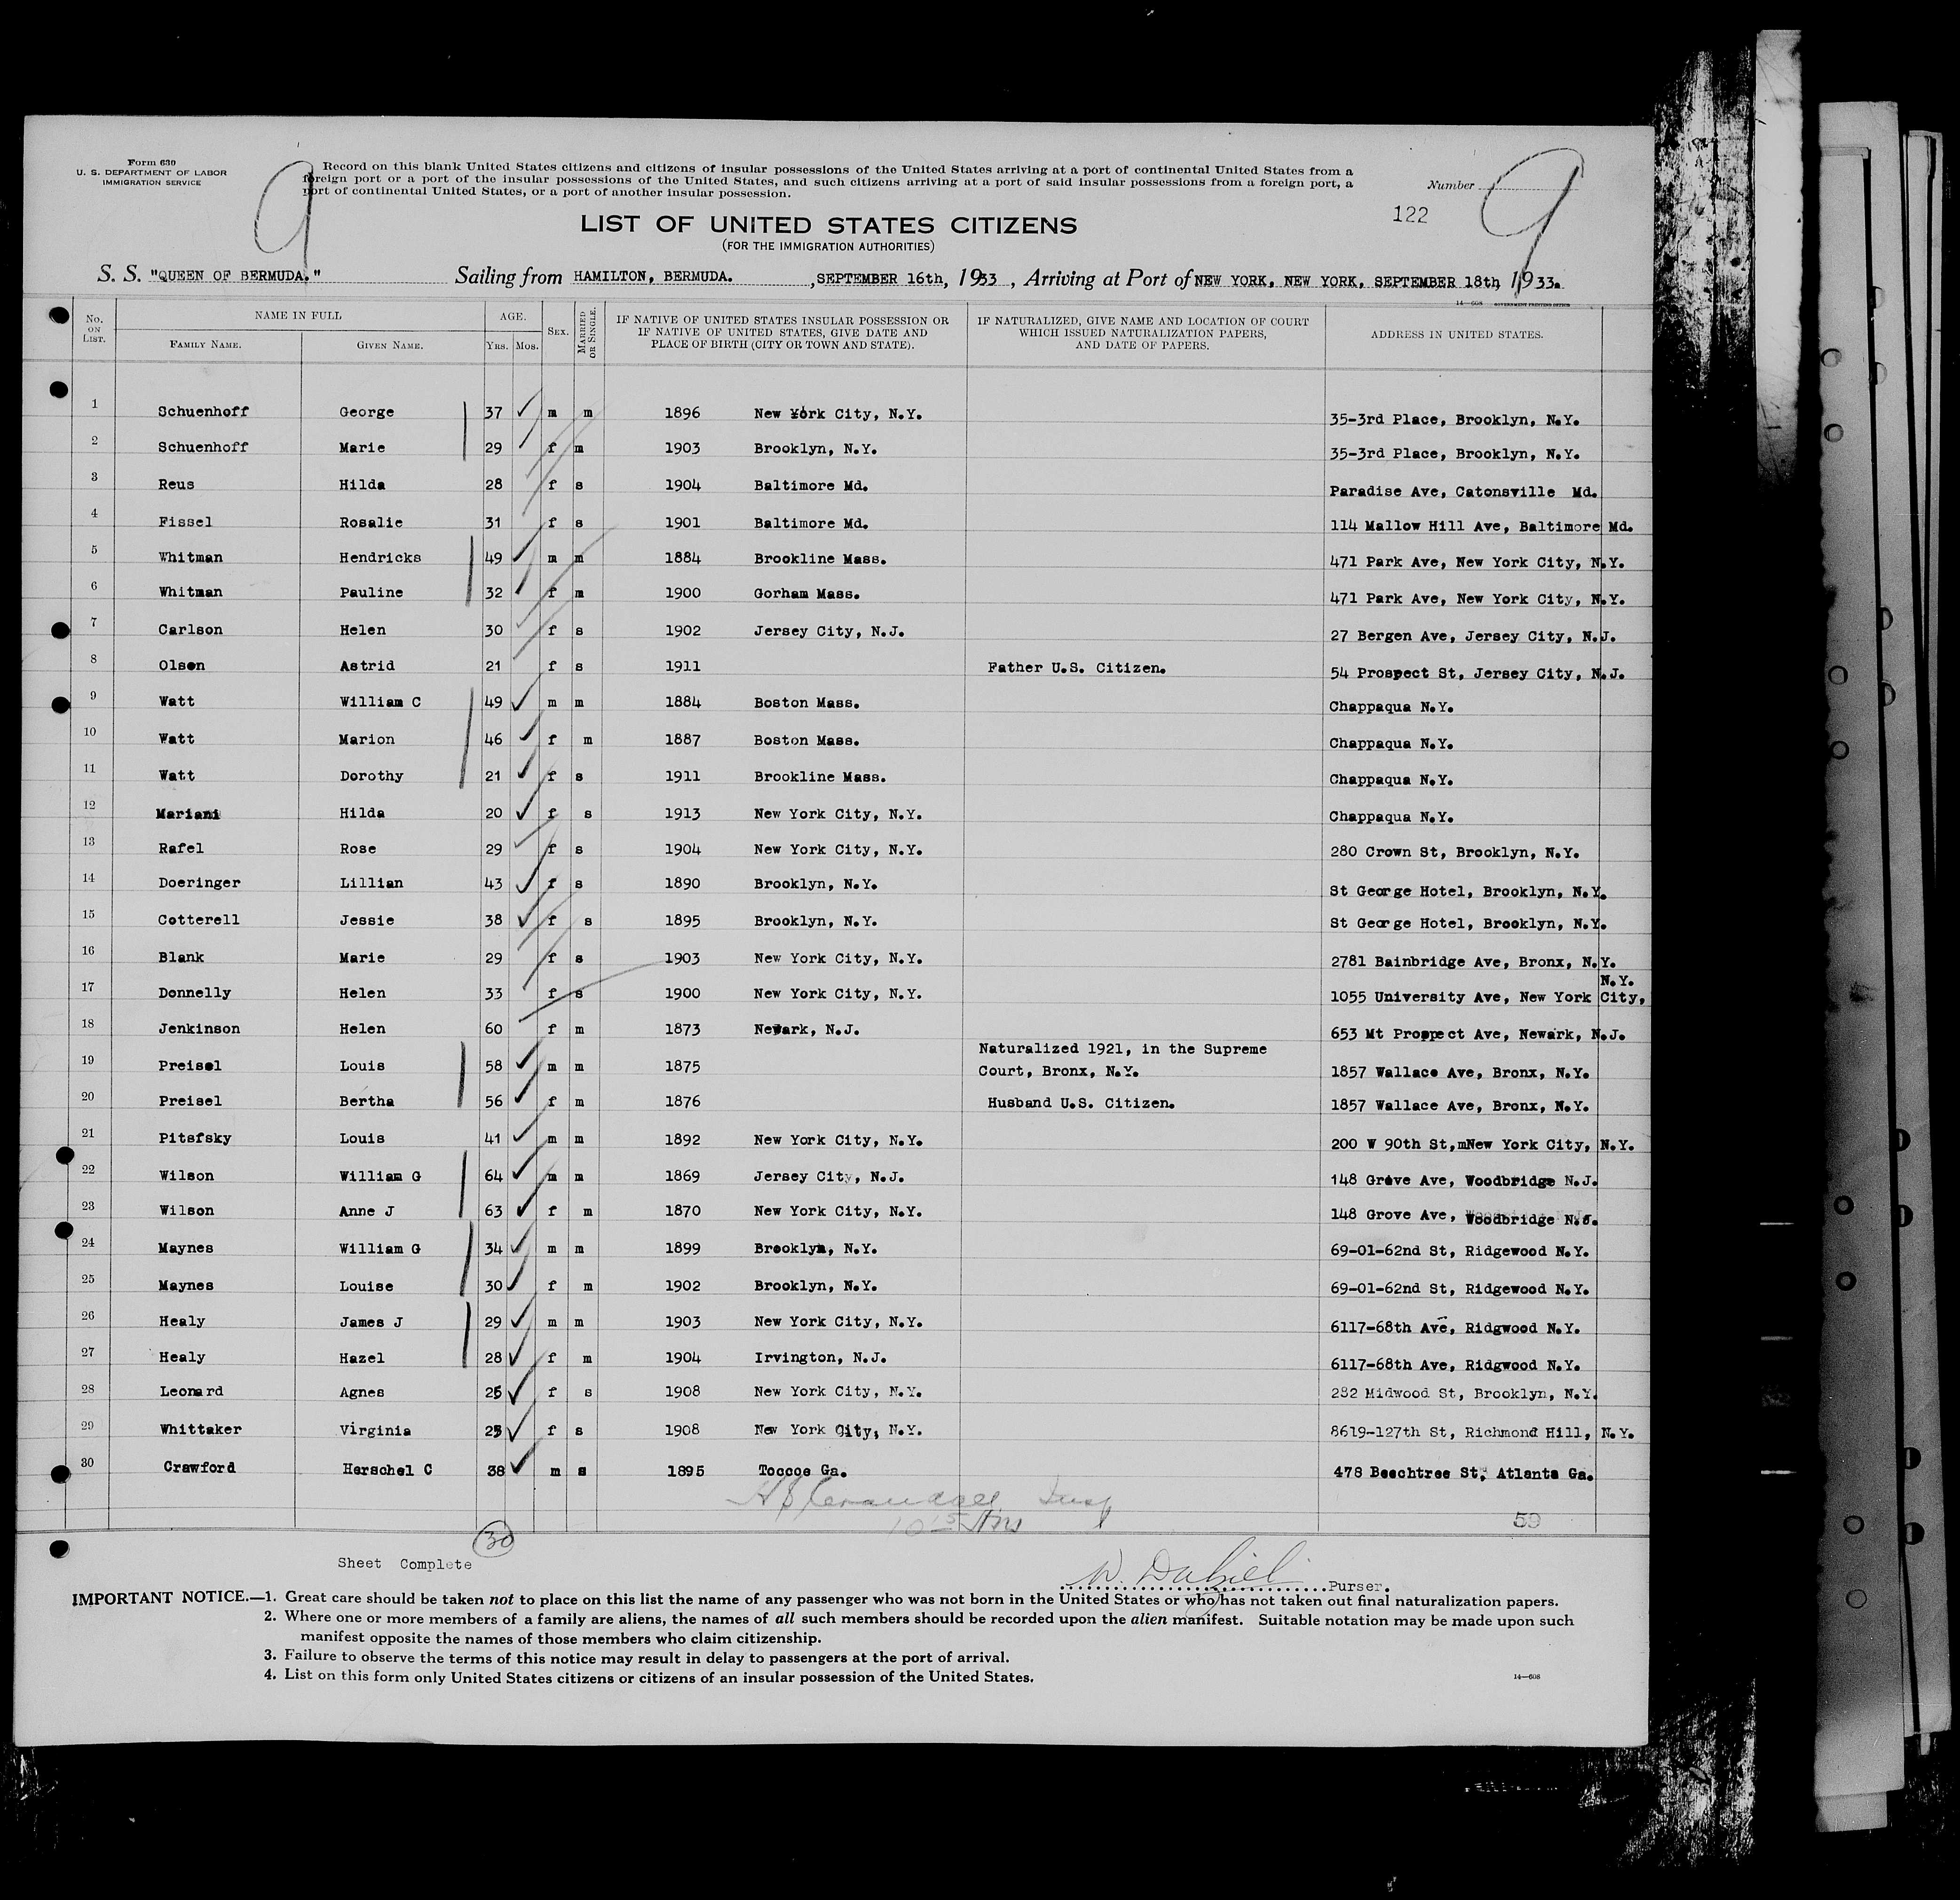 Form 630
U. S. DEPARTMENT OF LABOR
IMMIGRATION SERVICE
9
Record on this blank United States citizens and citizens of insular possessions of the United States arriving at a port of continental United States from a
foreign port or a port of the insular possessions of the United States, and such citizens arriving at a port of said insular possessions from a foreign port, a
port of continental United States, or a port of another insular possession.
Number
9
122
LIST OF UNITED STATES CITIZENS
(FOR THE IMMIGRATION AUTHORITIES)
S. S. "QUEEN OF BERMUDA." Sailing from HAMILTON, BERMUDA. , SEPTEMBER 16th, 1933, Arriving at Port of NEW YORK, NEW YORK, SEPTEMBER 18th, 1933.
14—608 GOVERNMENT PRINTING OFFICE
No. ON LIST. NAME IN FULL FAMILY NAME. GIVEN NAME. AGE. YRS. MOS. SEX. MARRIED OR SINGLE. IF NATIVE OF UNITED STATES INSULAR POSSESSION OR IF NATIVE OF UNITED STATES, GIVE DATE AND PLACE OF BIRTH (CITY OR TOWN AND STATE). IF NATURALIZED, GIVE NAME AND LOCATION OF COURT WHICH ISSUED NATURALIZATION PAPERS, AND DATE OF PAPERS. ADDRESS IN UNITED STATES.
1 Schuenhoff George 37 m m 1896 New York City, N.Y. 35-3rd Place, Brooklyn, N.Y.
2 Schuenhoff Marie 29 f m 1903 Brooklyn, N.Y. 35-3rd Place, Brooklyn, N.Y.
3 Reus Hilda 28 f s 1904 Baltimore Md. Paradise Ave, Catonsville Md.
4 Fissel Rosalie 31 f s 1901 Baltimore Md. 114 Mallow Hill Ave, Baltimore Md.
5 Whitman Hendricks 49 m m 1884 Brookline Mass. 471 Park Ave, New York City, N.Y.
6 Whitman Pauline 32 f m 1900 Gorham Mass. 471 Park Ave, New York City, N.Y.
7 Carlson Helen 30 f s 1902 Jersey City, N.J. 27 Bergen Ave, Jersey City, N.J.
8 Olsen Astrid 21 f s 1911 Father U.S. Citizen. 54 Prospect St, Jersey City, N.J.
9 Watt William C 49 m m 1884 Boston Mass. Chappaqua N.Y.
10 Watt Marion 46 f m 1887 Boston Mass. Chappaqua N.Y.
11 Watt Dorothy 21 f s 1911 Brookline Mass. Chappaqua N.Y.
12 Mariani Hilda 20 f s 1913 New York City, N.Y. Chappaqua N.Y.
13 Rafel Rose 29 f s 1904 New York City, N.Y. 280 Crown St, Brooklyn, N.Y.
14 Doeringer Lillian 43 f s 1890 Brooklyn, N.Y. St George Hotel, Brooklyn, N.Y.
15 Cotterell Jessie 38 f s 1895 Brooklyn, N.Y. St George Hotel, Brooklyn, N.Y.
16 Blank Marie 29 f s 1903 New York City, N.Y. 2781 Bainbridge Ave, Bronx, N.Y.
17 Donnelly Helen 33 f s 1900 New York City, N.Y. 1055 University Ave, New York City, N.Y.
18 Jenkinson Helen 60 f m 1873 Newark, N.J. 653 Mt Prospect Ave, Newark, N.J.
19 Preisel Louis 58 m m 1875 Naturalized 1921, in the Supreme Court, Bronx, N.Y. 1857 Wallace Ave, Bronx, N.Y.
20 Preisel Bertha 56 f m 1876 Husband U.S. Citizen. 1857 Wallace Ave, Bronx, N.Y.
21 Pitsfsky Louis 41 m m 1892 New York City, N.Y. 200 W 90th St,mNew York City, N.Y.
22 Wilson William G 64 m m 1869 Jersey City, N.J. 148 Grove Ave, Woodbridge N.J.
23 Wilson Anne J 63 f m 1870 New York City, N.Y. 148 Grove Ave, Woodbridge N.J.
24 Maynes William G 34 m m 1899 Brooklyn, N.Y. 69-01-62nd St, Ridgewood N.Y.
25 Maynes Louise 30 f m 1902 Brooklyn, N.Y. 69-01-62nd St, Ridgewood N.Y.
26 Healy James J 29 m m 1903 New York City, N.Y. 6117-68th Ave, Ridgwood N.Y.
27 Healy Hazel 28 f m 1904 Irvington, N.J. 6117-68th Ave, Ridgwood N.Y.
28 Leonard Agnes 25 f s 1908 New York City, N.Y. 282 Midwood St, Brooklyn, N.Y.
29 Whittaker Virginia 25 f s 1908 New York City, N.Y. 8619-127th St, Richmond Hill, N.Y.
30 Crawford Herschel C 38 m s 1895 Toccoe Ga. 478 Beechtree St, Atlanta Ga.
Insp
59
30
Sheet Complete
Purser.
IMPORTANT NOTICE.—1. Great care should be taken not to place on this list the name of any passenger who was not born in the United States or who has not taken out final naturalization papers.
2. Where one or more members of a family are aliens, the names of all such members should be recorded upon the alien manifest. Suitable notation may be made upon such
manifest opposite the names of those members who claim citizenship.
3. Failure to observe the terms of this notice may result in delay to passengers at the port of arrival.
4. List on this form only United States citizens or citizens of an insular possession of the United States.
14—608